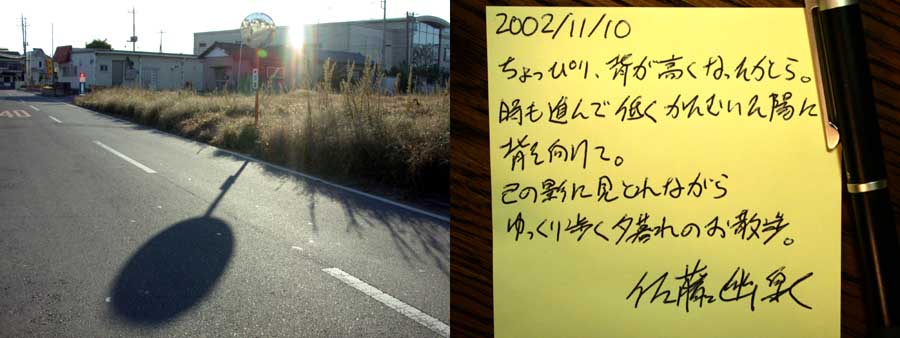 2002/11/10
ちょっぴり、背が高くなったかしら。
時も進んで低くかたむいた陽に
背を向けて。
己の影に見とれながら
ゆっくり歩く夕暮れのお散歩。
佐藤